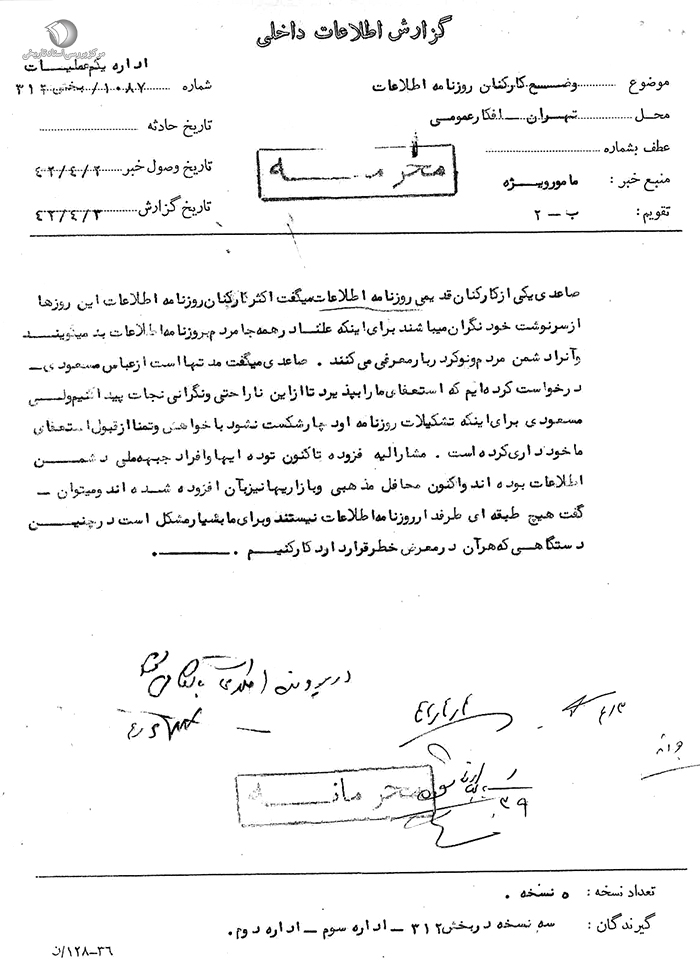 گزارش اطلاعات داخلی
مرکز بررسی اسناد تاریخی
اداره یکم عملیات
موضوع وضع کارکنان روزنامه اطلاعات
شماره ۱۰۸۷/بخش ۳۱۲
محل تهران – افکار عمومی
تاریخ حادثه
عطف بشماره
محرمانه
تاریخ وصول خبر ۴۲/۴/۲
منبع خبر : مامور ویژه
تاریخ گزارش ۴۲/۴/۳
تقویم : ب – ۲
صاعدی یکی از کارکنان قدیمی روزنامه اطلاعات میگفت اکثر کارکنان روزنامه اطلاعات این روزها
از سرنوشت خود نگران میباشند برای اینکه علنا در همه جا مردم بروزنامه اطلاعات بد میگویند
و آنرا دشمن مردم و نوکر دربار معرفی می کنند . صاعدی میگفت مدتها است از عباس مسعودی –
درخواست کرده ایم که استعفای ما را بپذیرد تا از این ناراحتی و نگرانی نجات پیدا کنیم ولی
مسعودی برای اینکه تشکیلات روزنامه او دچار شکست نشود با خواهش و تمنا از قبول استعفای
ما خودداری کرده است . مشارالیه افزوده تاکنون توده ایها و افراد جبهه ملی دشمن
اطلاعات بوده اند و اکنون محافل مذهبی و بازاریها نیز بآن افزوده شده اند و میتوان –
گفت هیچ طبقه ای طرفدار روزنامه اطلاعات نیستند و برای ما بسیار مشکل است در چنین
دستگاهی که هر آن در معرض خطر قرار دارد کار کنیم .
محرمانه
تعداد نسخه : ۵ نسخه .
گیرندگان : سه نسخه در بخش ۳۱۲ – اداره سوم – اداره دوم .
۳۶–۱۲۸/ن